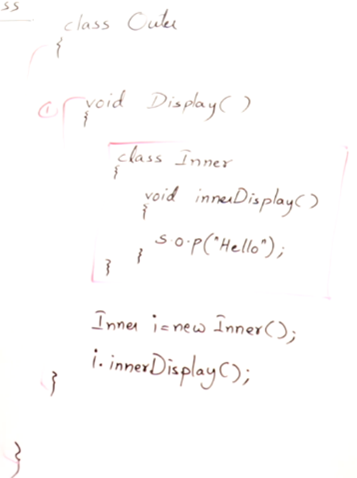 ss
class Outer
{
① void Display()
{
class Inner
{
void innerDisplay()
{
s.o.p("Hello");
}
}
Inner i=new Inner();
i.innerDisplay();
}
}